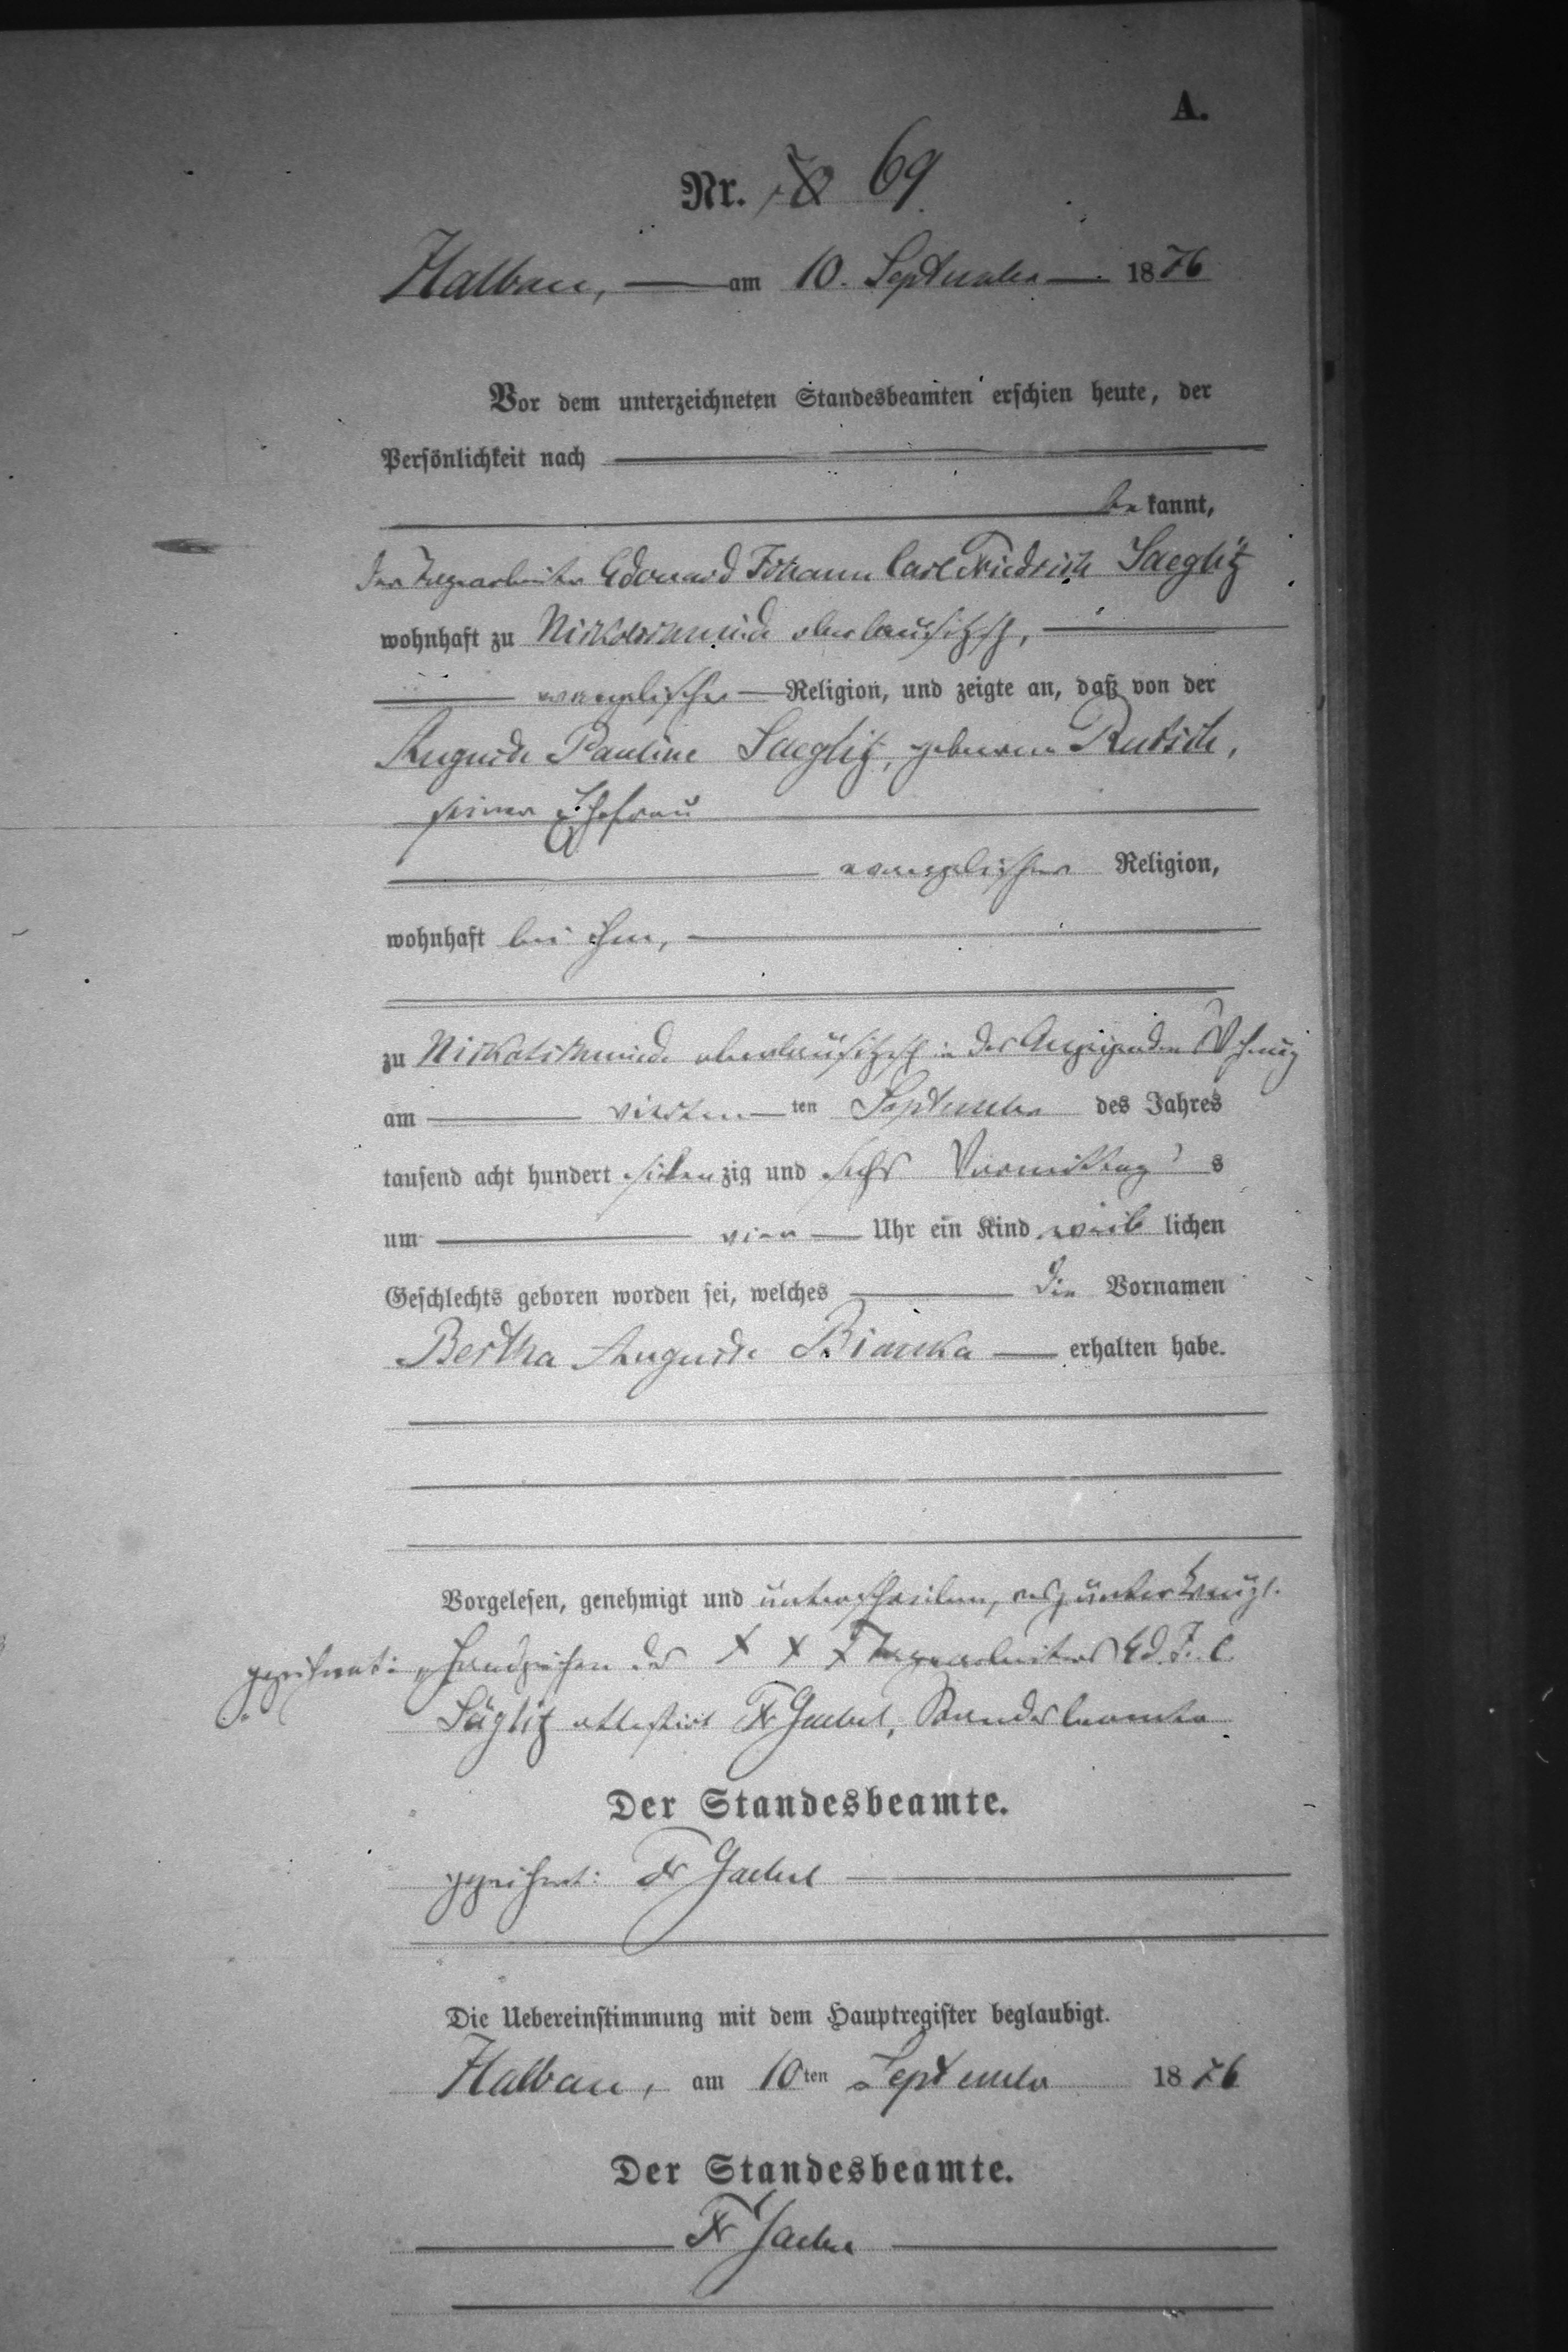 A.
Nr. 70 69
Halbau, am 10. September 1876
Vor dem unterzeichneten Standesbeamten erschien heute, der
Persönlichkeit nach
bekannt,
der Tagearbeiter Edouard Johann Carl Friedrich Saeglitz
wohnhaft zu Nikolschmiede oberlausitzsch,
evangelischer Religion, und zeigte an, daß von der
Auguste Pauline Saeglitz, geborene Rutsch,
seiner Ehefrau
evangelischer Religion,
wohnhaft bei ihm,
zu Nikolschmiede oberlausitzsch in des Anzeigenden Wohnung
am vierten ten September des Jahres
tausend acht hundert siebenzig und sechs Vormittags
um vier Uhr ein Kind weiblichen
Geschlechts geboren worden sei, welches die Vornamen
Bertha Auguste Bianka erhalten habe.
Vorgelesen, genehmigt und unterschrieben, resp unterkreuzt.
gezeichnet: „Handzeichen des X X X Tagearbeiters Ed. J. C.
Säglitz attestirt Fr Gaebel, Standesbeamter
Der Standesbeamte.
gezeichnet: Fr Gaebel
Die Uebereinstimmung mit dem Hauptregister beglaubigt.
Halbau, am 10ten September 1876
Der Standesbeamte.
Fr Gaebel